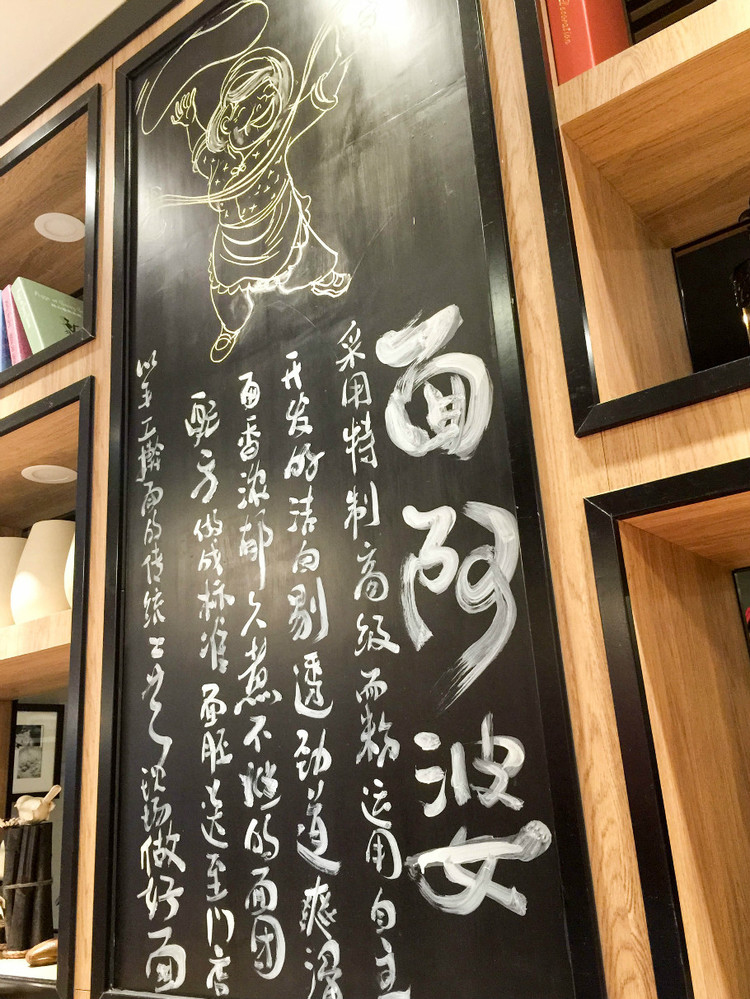 面阿婆女
采用特制高级面粉运用自主
开发的洁白剔透劲道爽滑
面香浓郁久煮不烂的面团
配方做成标准面胚送至门店
以手工擀面的传统工艺现场做好面
Decoration